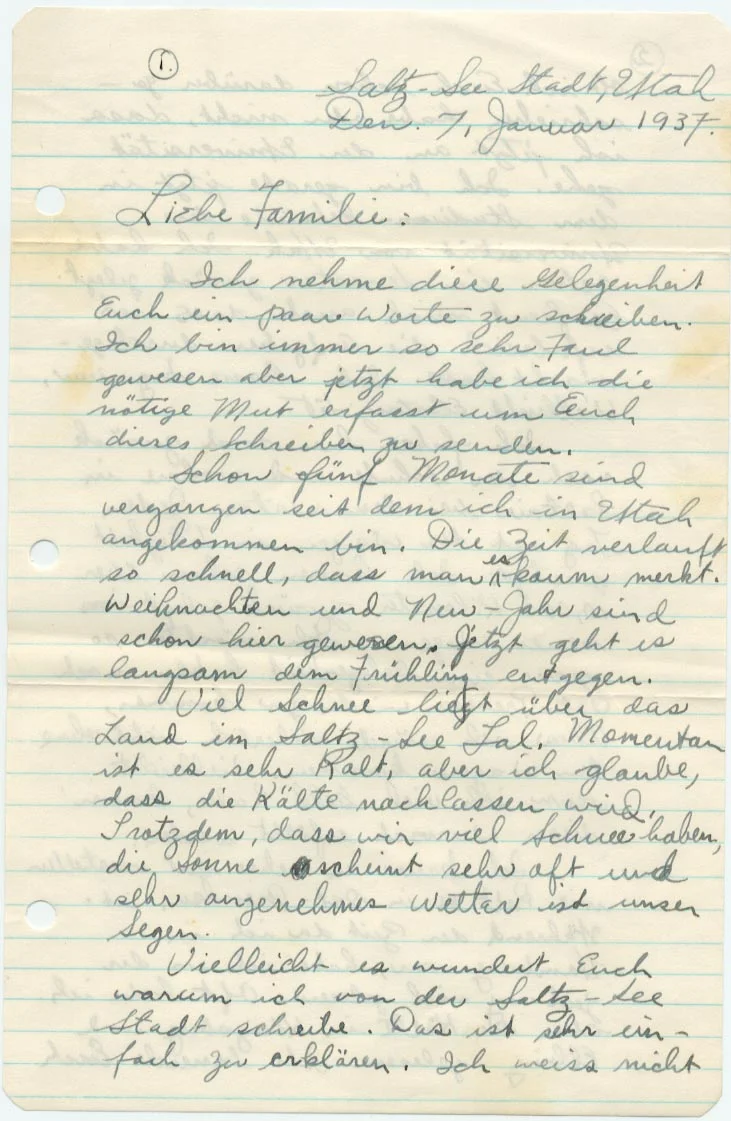 1.
Saltz-See Stadt, Utah
Den. 7, Januar 1937.
Liebe Familie:
Ich nehme diese Gelegenheit
Euch ein paar Worte zu schreiben.
Ich bin immer so sehr Faul
gewesen aber jetzt habe ich die
nötige Mut erfasst um Euch
dieses Schreiben zu senden.
Schon fünf Monate sind
vergangen seit dem ich in Utah
angekommen bin. Die Zeit verlauft
so schnell, dass man es kaum merkt.
Weihnachten und Neu-Jahr sind
schon hier gewesen. Jetzt geht es
langsam dem Frühling entgegen.
Viel Schnee liegt über das
Land im Saltz-See Tal. Momentan
ist es sehr Kalt, aber ich glaube,
dass die Kälte nachlassen wird.
Trotzdem, dass wir viel Schnee haben,
die Sonne scheint sehr oft und
sehr angenehmes Wettar ist unser
Segen.
Vielleicht es wundert Euch
warum ich von der Saltz-See
Stadt schreibe. Das ist sehr ein-
fach zu erklären. Ich weiss nicht